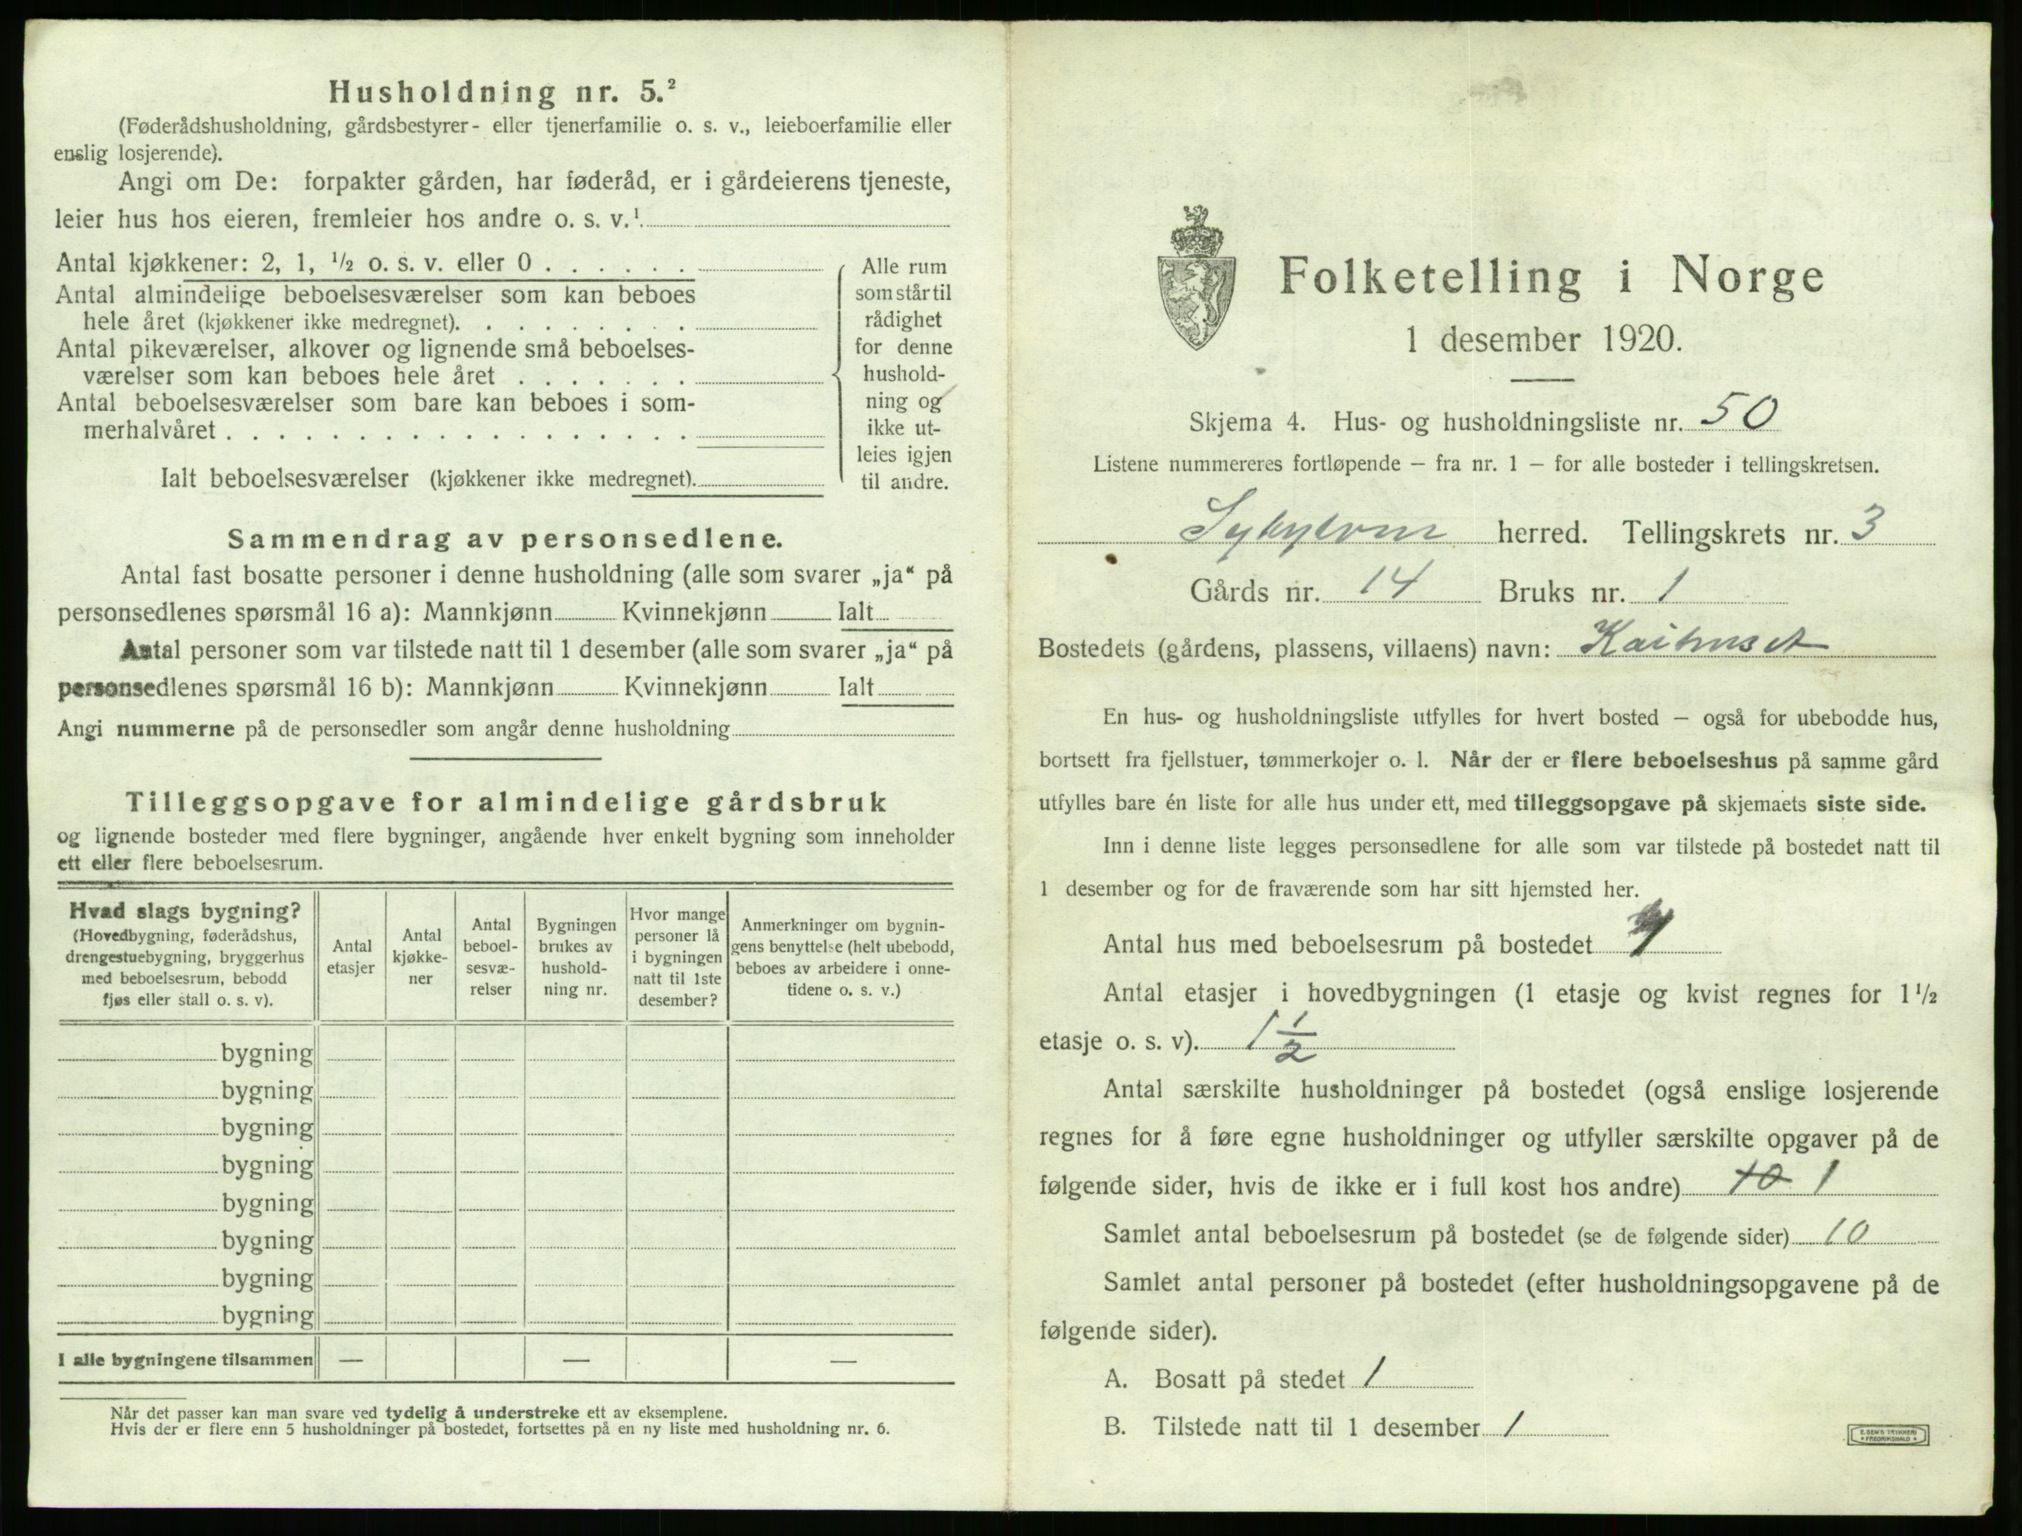 Husholdning nr. 5.²
(Føderådshusholdning, gårdsbestyrer- eller tjenerfamilie o. s. v., leieboerfamilie eller
enslig losjerende).
Angi om De: forpakter gården, har føderåd, er i gårdeierens tjeneste,
leier hus hos eieren, fremleier hos andre o. s. v.¹
Antal kjøkkener: 2, 1, ½ o. s. v. eller 0 . . . . . .
Antal almindelige beboelsesværelser som kan beboes
hele året (kjøkkener ikke medregnet). . . . . . . . .
Antal pikeværelser, alkover og lignende små beboelses-
værelser som kan beboes hele året . . . . . . .
Antal beboelsesværelser som bare kan beboes i som-
merhalvåret . . . . . . . . . . . . . . . . . .
Ialt beboelsesværelser (kjøkkener ikke medregnet).
Alle rum
som står til
rådighet
for denne
hushold-
ning og
ikke ut-
leies igjen
til andre.
Sammendrag av personsedlene.
Antal fast bosatte personer i denne husholdning (alle som svarer „ja“ på
personsedlenes spørsmål 16 a): Mannkjønn Kvinnekjønn Ialt
Antal personer som var tilstede natt til 1 desember (alle som svarer „ja“ på
personsedlenes spørsmål 16 b): Mannkjønn Kvinnekjønn Ialt
Angi nummerne på de personsedler som angår denne husholdning
Tilleggsopgave for almindelige gårdsbruk
og lignende bosteder med flere bygninger, angående hver enkelt bygning som inneholder
ett eller flere beboelsesrum.
Hvad slags bygning?
(Hovedbygning, føderådshus,
drengestuebygning, bryggerhus
med beboelsesrum, bebodd
fjøs eller stall o. s. v).
Antal
etasjer
Antal
kjøkke-
ner
Antal
beboel-
sesvæ-
relser
Bygningen
brukes av
hushold-
ning nr.
Hvor mange
personer lå
i bygningen
natt til 1ste
desember?
Anmerkninger om bygnin-
gens benyttelse (helt ubebodd,
beboes av arbeidere i onne-
tidene o. s. v.)
bygning
bygning
bygning
bygning
bygning
bygning
bygning
bygning
I alle bygningene tilsammen — — —
Når det passer kan man svare ved tydelig å understreke ett av eksemplene.
Hvis der er flere enn 5 husholdninger på bostedet, fortsettes på en ny liste med husholdning nr. 6.
Folketelling i Norge
1 desember 1920.
Skjema 4. Hus- og husholdningsliste nr. 50
Listene nummereres fortløpende – fra nr. 1 – for alle bosteder i tellingskretsen.
Sykylven herred. Tellingskrets nr. 3
Gårds nr. 14 Bruks nr. 1
Bostedets (gårdens, plassens, villaens) navn: Kaihuset
En hus- og husholdningsliste utfylles for hvert bosted – også for ubebodde hus,
bortsett fra fjellstuer, tømmerkojer o. l. Når der er flere beboelseshus på samme gård
utfylles bare én liste for alle hus under ett, med tilleggsopgave på skjemaets siste side.
Inn i denne liste legges personsedlene for alle som var tilstede på bostedet natt til
1 desember og for de fraværende som har sitt hjemsted her.
Antal hus med beboelsesrum på bostedet
Antal etasjer i hovedbygningen (1 etasje og kvist regnes for 1½
etasje o. s. v). 1½
Antal særskilte husholdninger på bostedet (også enslige losjerende
regnes for å føre egne husholdninger og utfyller særskilte opgaver på de
følgende sider, hvis de ikke er i full kost hos andre) 10 1
Samlet antal beboelsesrum på bostedet (se de følgende sider) 10
Samlet antal personer på bostedet (efter husholdningsopgavene på de
følgende sider).
A. Bosatt på stedet 1
B. Tilstede natt til 1 desember 1
E. SEM'S TRYKKERI
FREDRIKSHALD